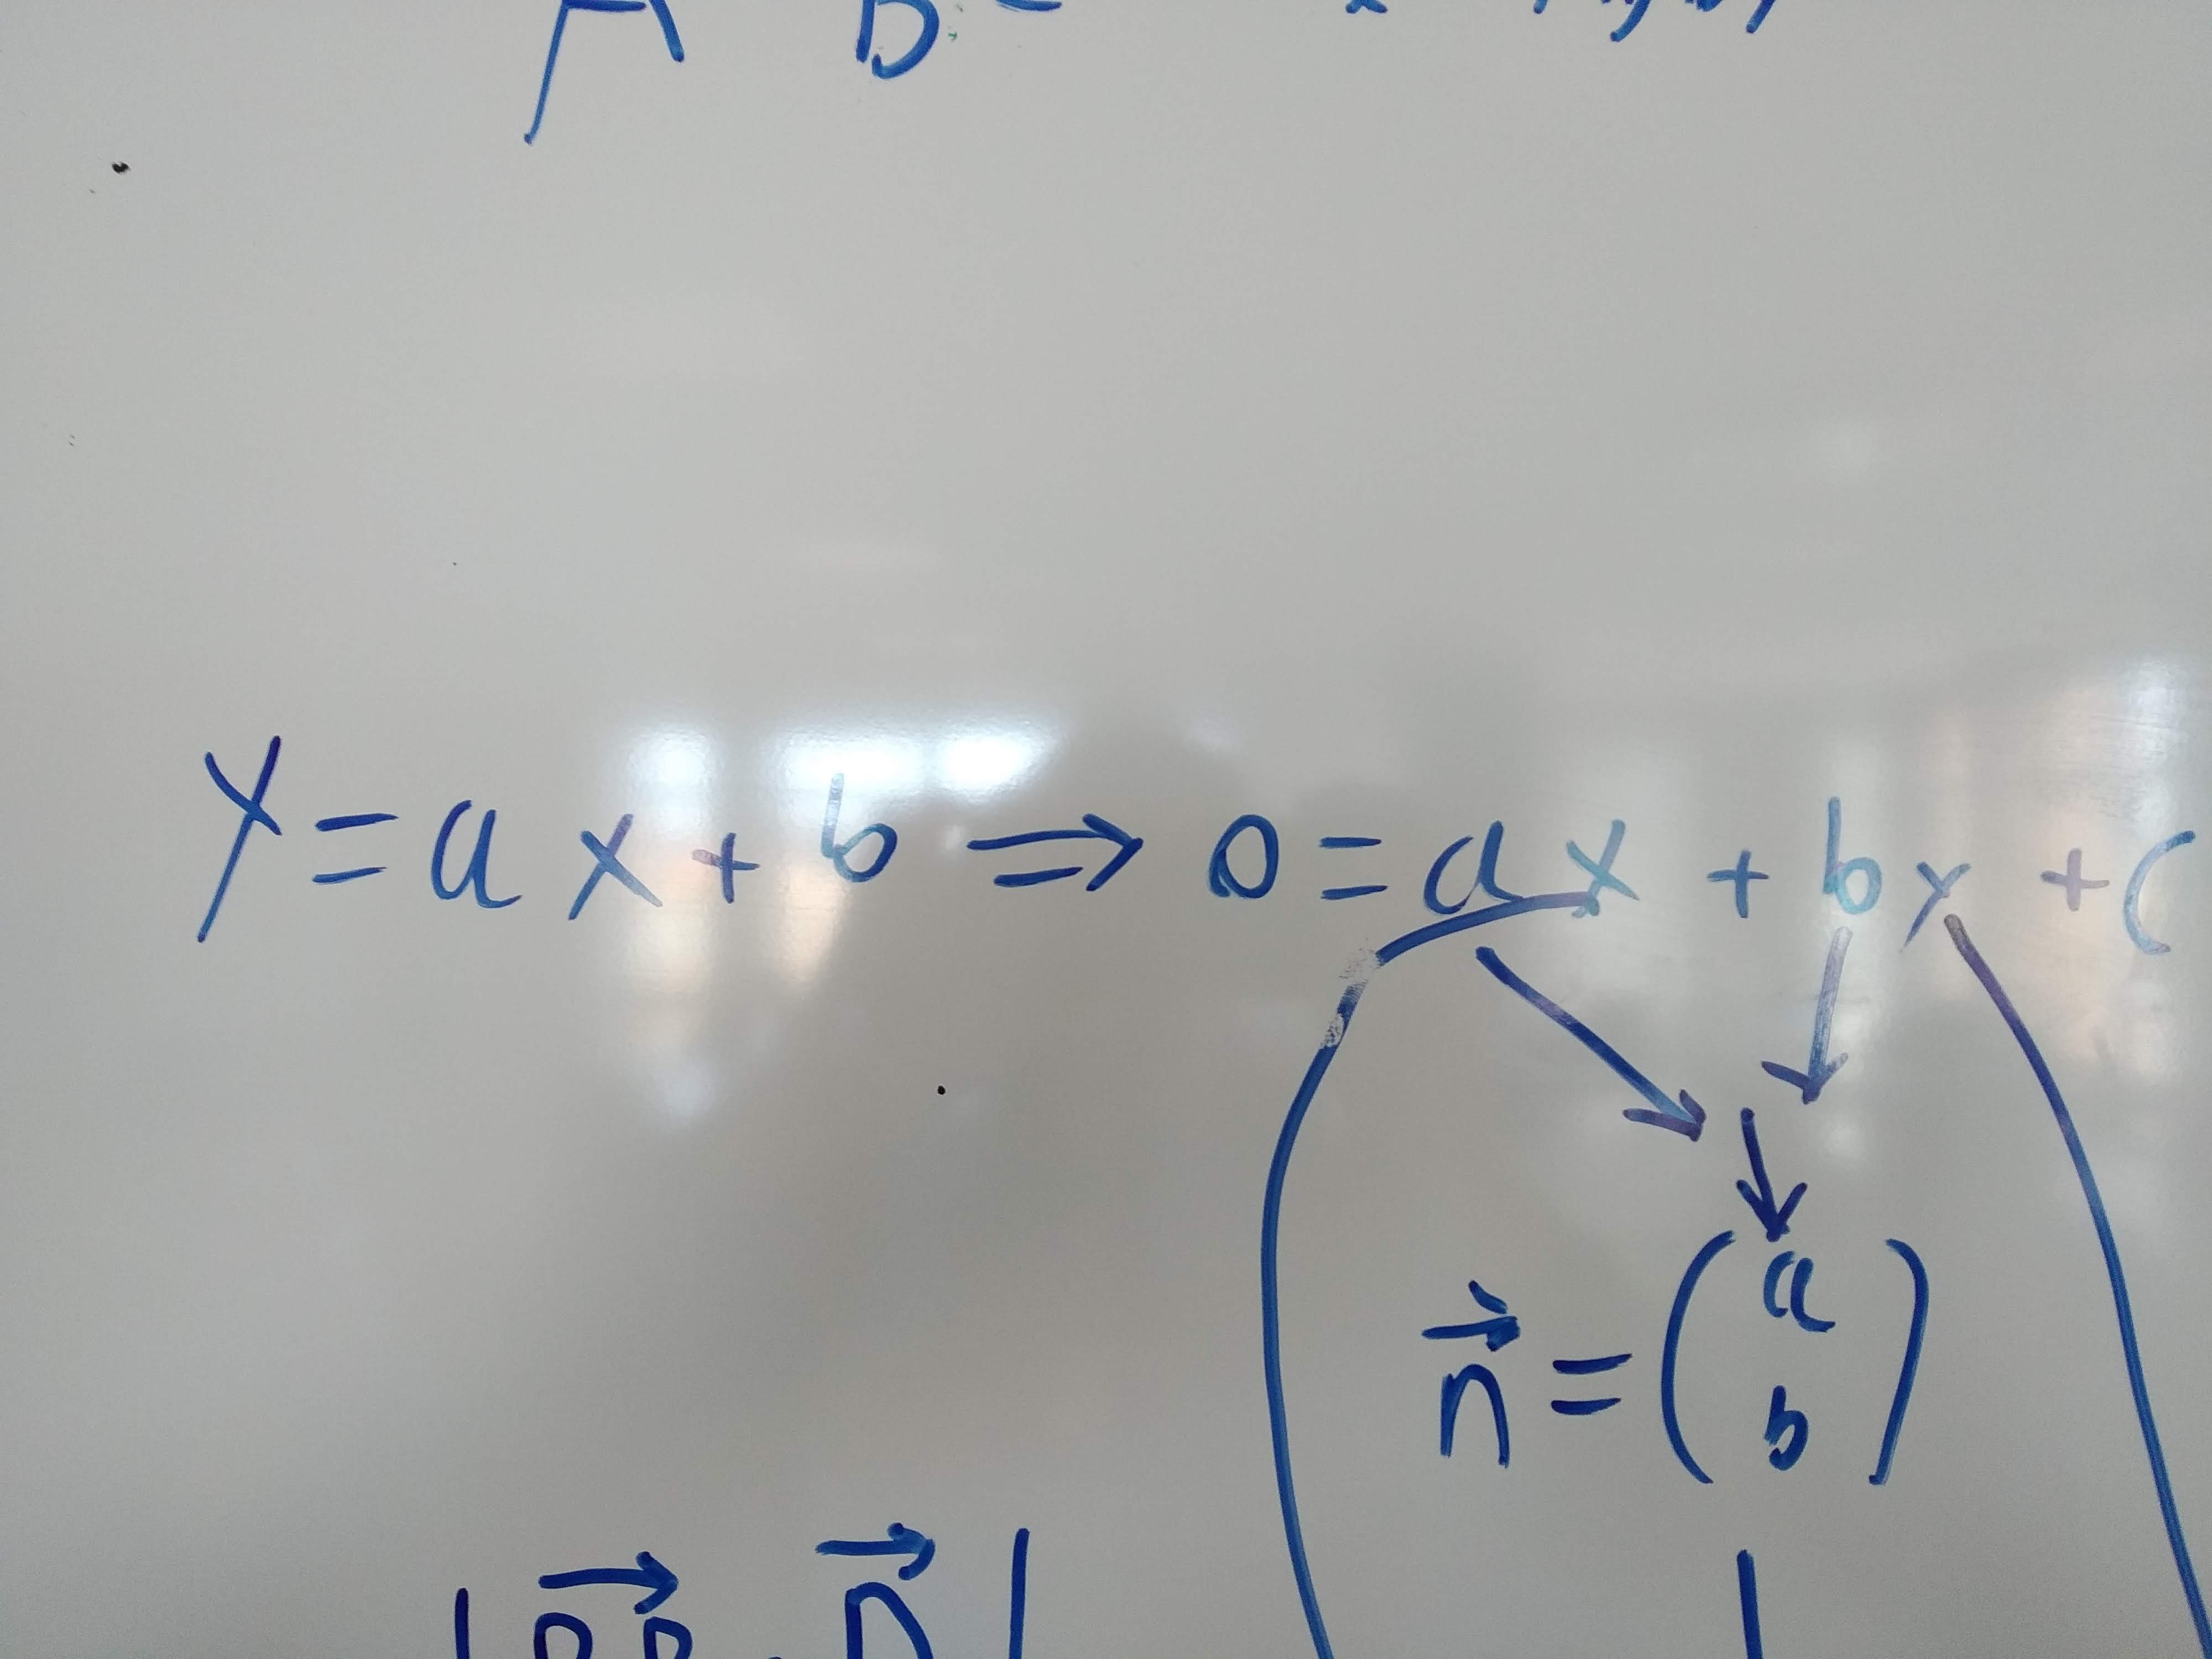 A B
y = ax + b ⇒ 0 = ax + by + c
n⃗ = (a
b)
| n⃗ |